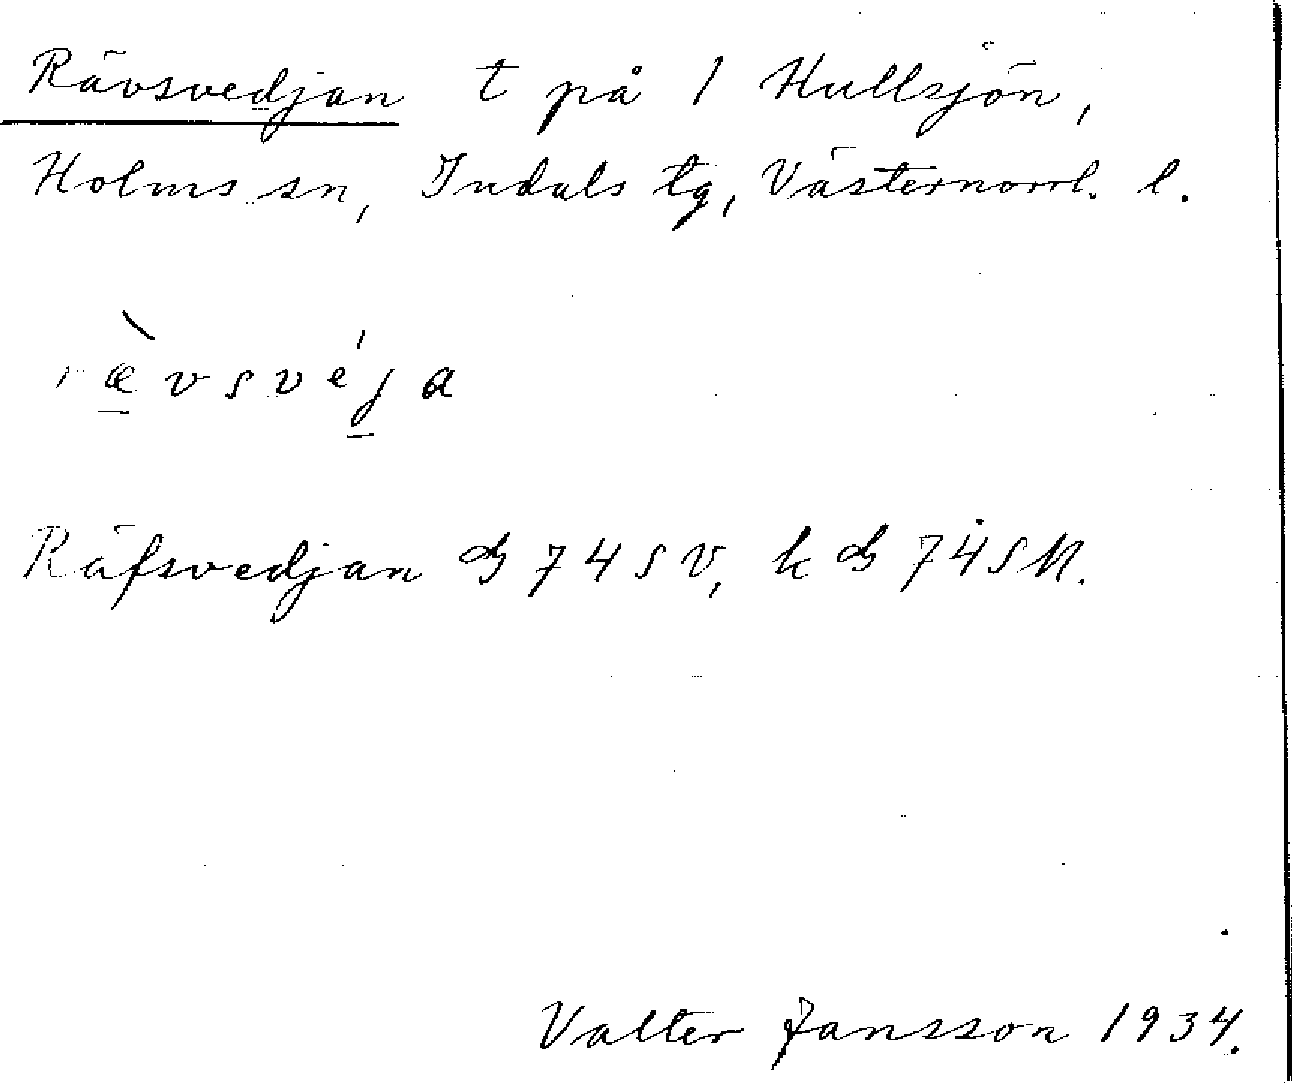 Rävsvedjan t på 1 Hullsjön,
Holms sn, Indals tg, Västernorrl. l.
rævsveja
Räfsvedjan 74 SV, k 74 SV.
Valter Jansson 1934.